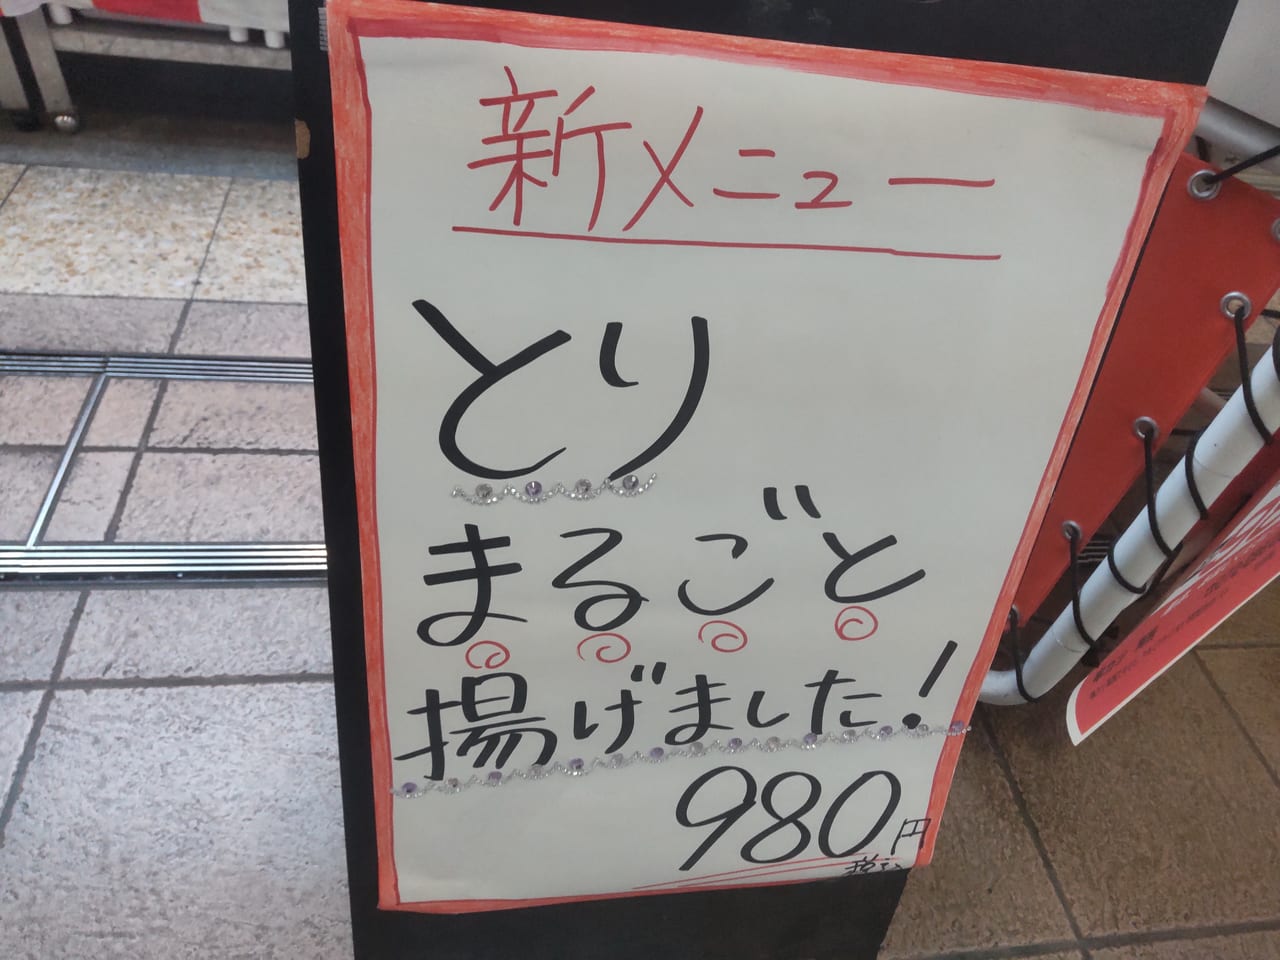 新メニュー
とり
まるごと
揚げました!
980円
税込